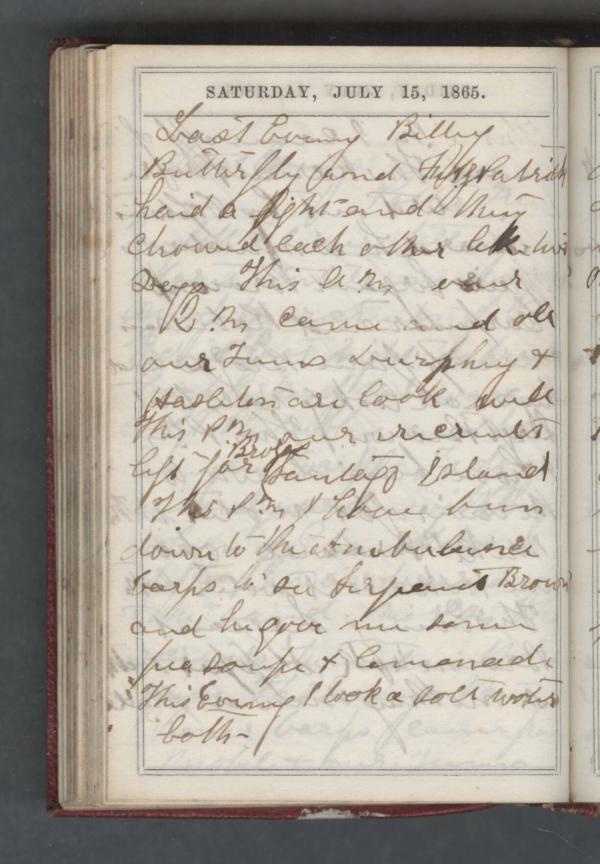 SATURDAY, JULY 15, 1865.
Last Evning Billy
Butterfly and Fitzpatrick
haid a fight and thay
chawed each other like two
Dogs This A.M our
Q.M came and all
our Teams Murphy &
Haselton are look well
This P M our recruits
left for Brozos Santago Island
This P.M I have bin
down to the Ambulance
Corps to see Serjeant Brown
and he gave me some
pea soupe & Lemonade
This Evning I took a salt water
bath -